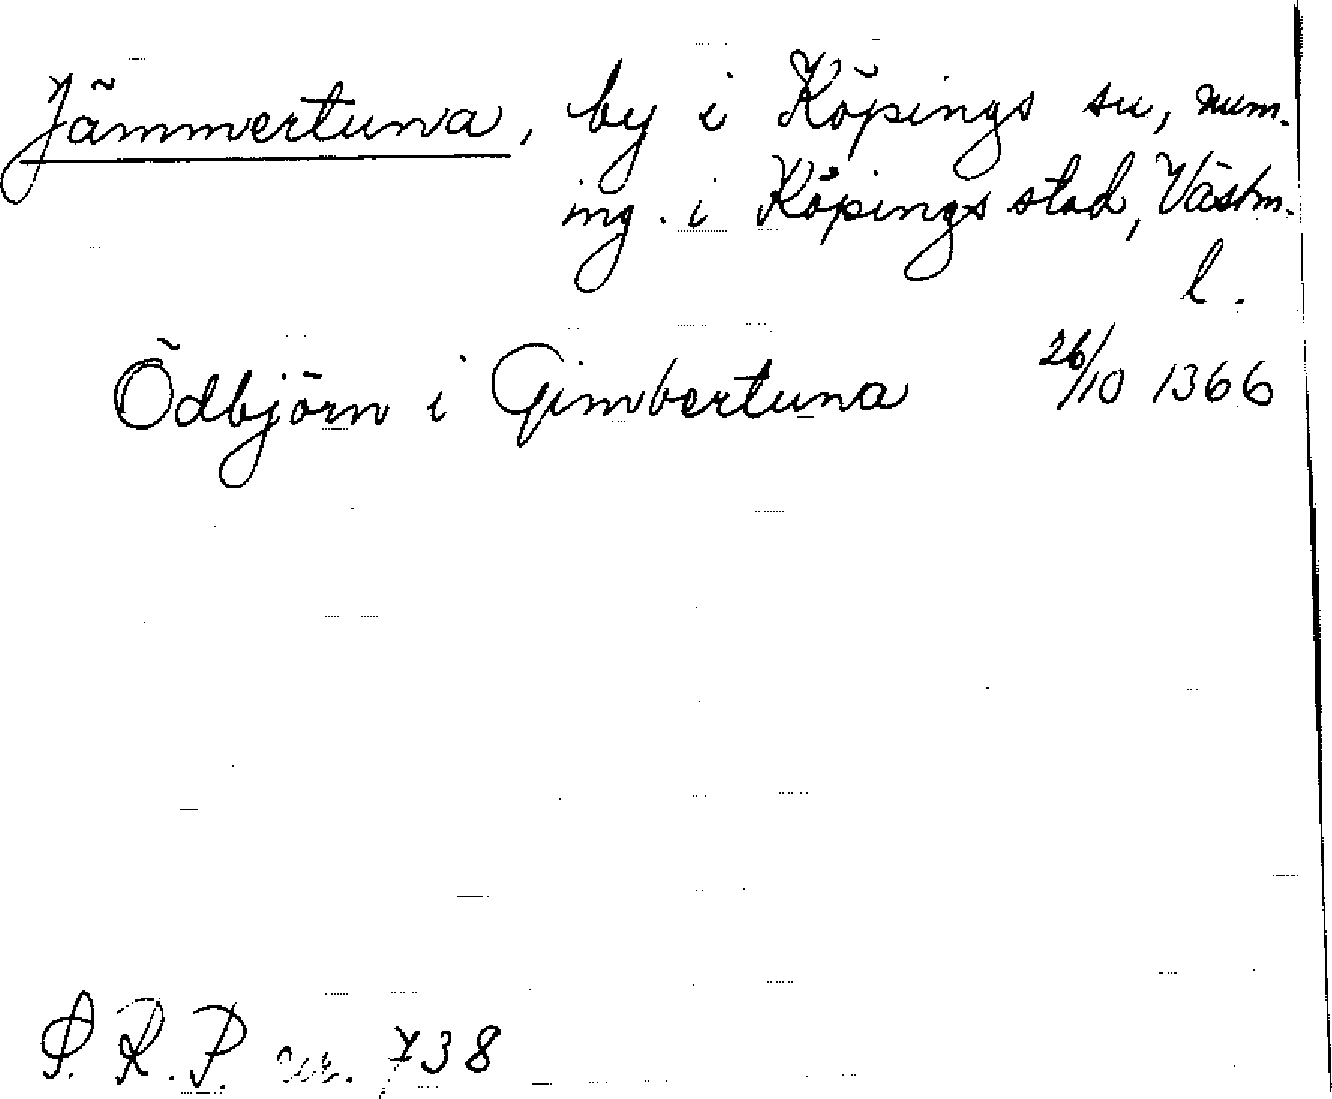 Jämmertuna, by i Köpings sn, num.
ing. i Köpings stad, Västm.
l.
Ödbjörn i Gimbertuna 26/10 1366
S. R. P. nr. 738